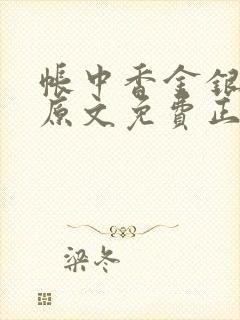 帐中香金银
原文免费正
梁冬